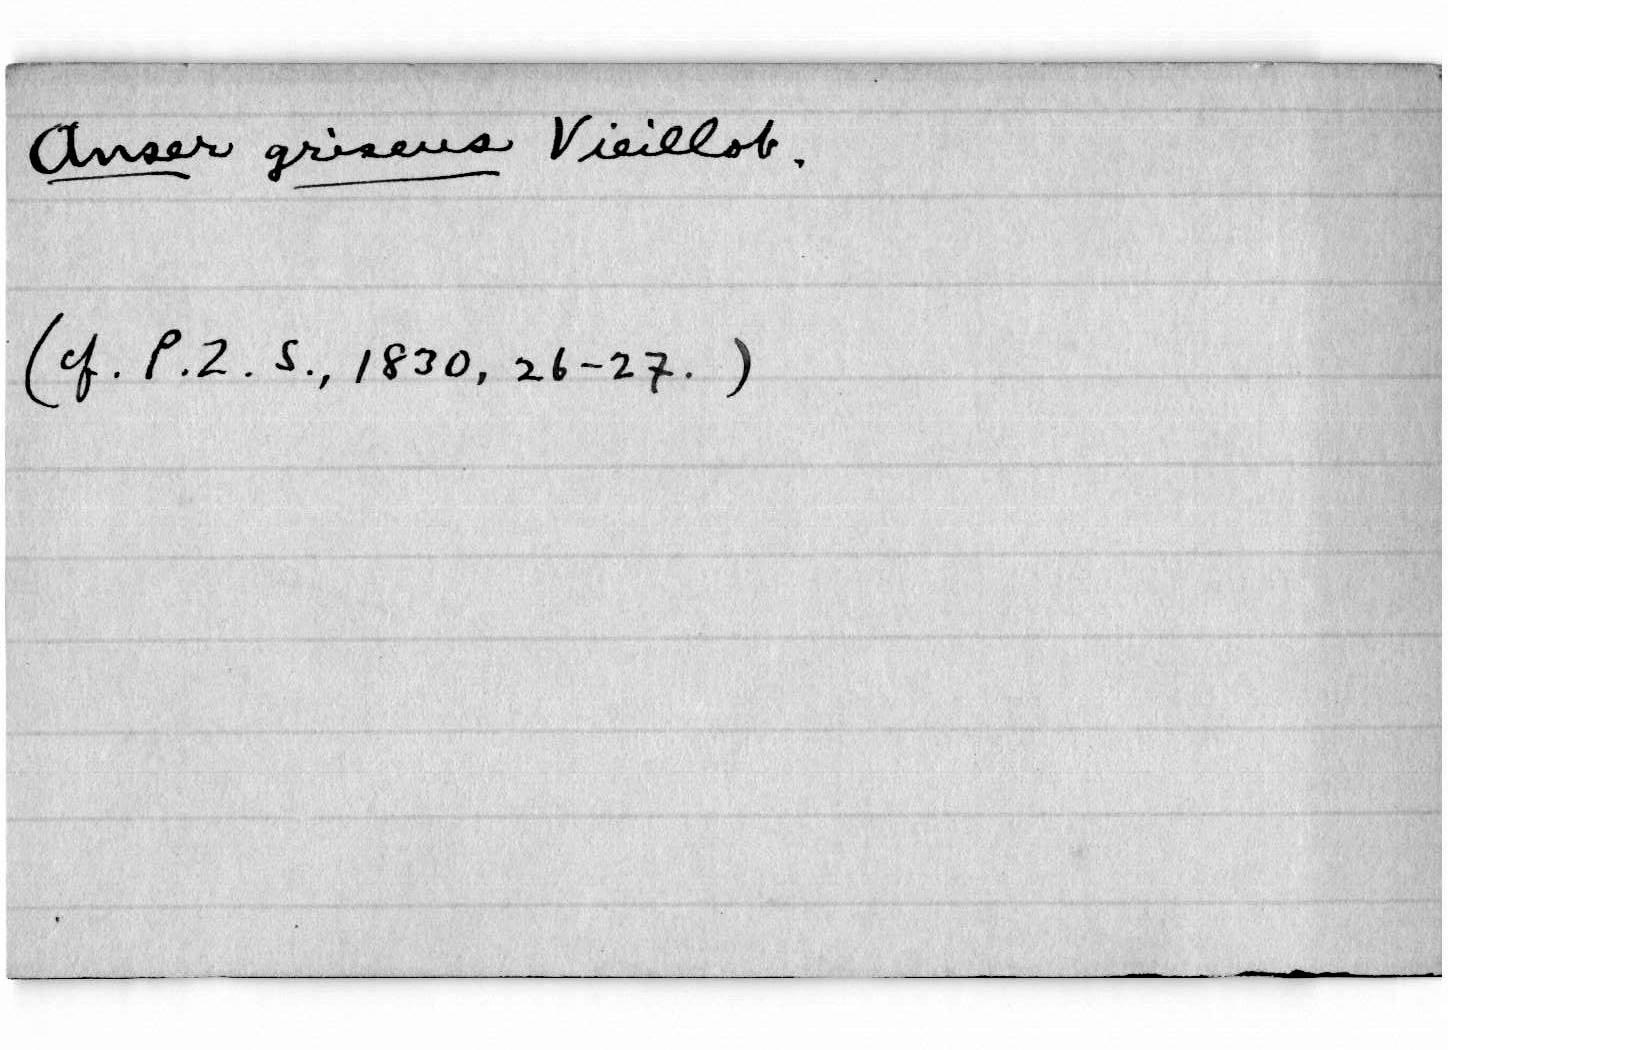 Anser griseus Vieillot.
(cf. P.Z.S., 1830, 26-27.)